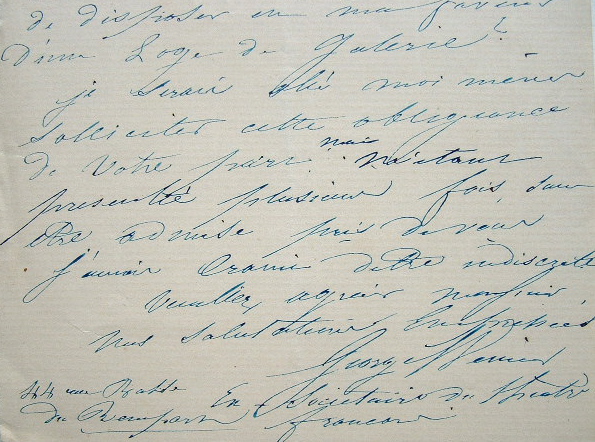 de disposer en ma faveur
d'une Loge de Galerie?
je serais allé moi même
solliciter cette obligeance
de votre part mais m'étant
presenté plusieurs fois sans
être admise près de vous
j'aurais craint d'être indiscrete
veuillez agréer monsieur
mes salutations empressées
George
44 rue Basse Ex Sociétaire du théatre
du Rempart francais